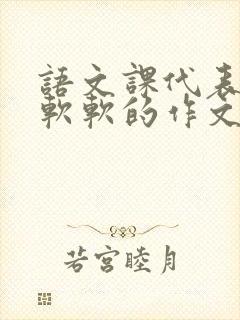 語文課代表
軟軟的作文
若宮睦月